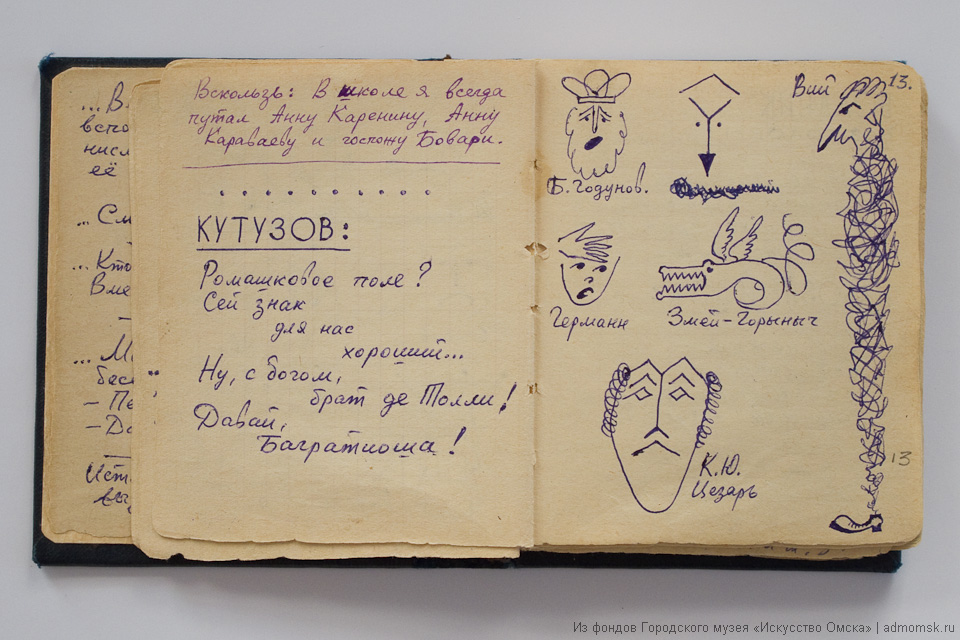 ... В
вспо
нисл
её
... См
... Кто
Вме
–
... М
бесе
– Пе
– До
Исто
выу
Вскользь: В школе я всегда
путал Анну Каренину, Анну
Караваеву и госпожу Бовари.
. . . . . . . . . . .
КУТУЗОВ:
Ромашковое поле?
Сей знак
для нас
хороший...
Ну, с богом,
брат де Толли!
Давай,
Багратиоша!
Б. Годунов.
Вий
13.
Германн
Змей-Горыныч
К.Ю.
Цезарь
13
Из фондов Городского музея «Искусство Омска» | admomsk.ru